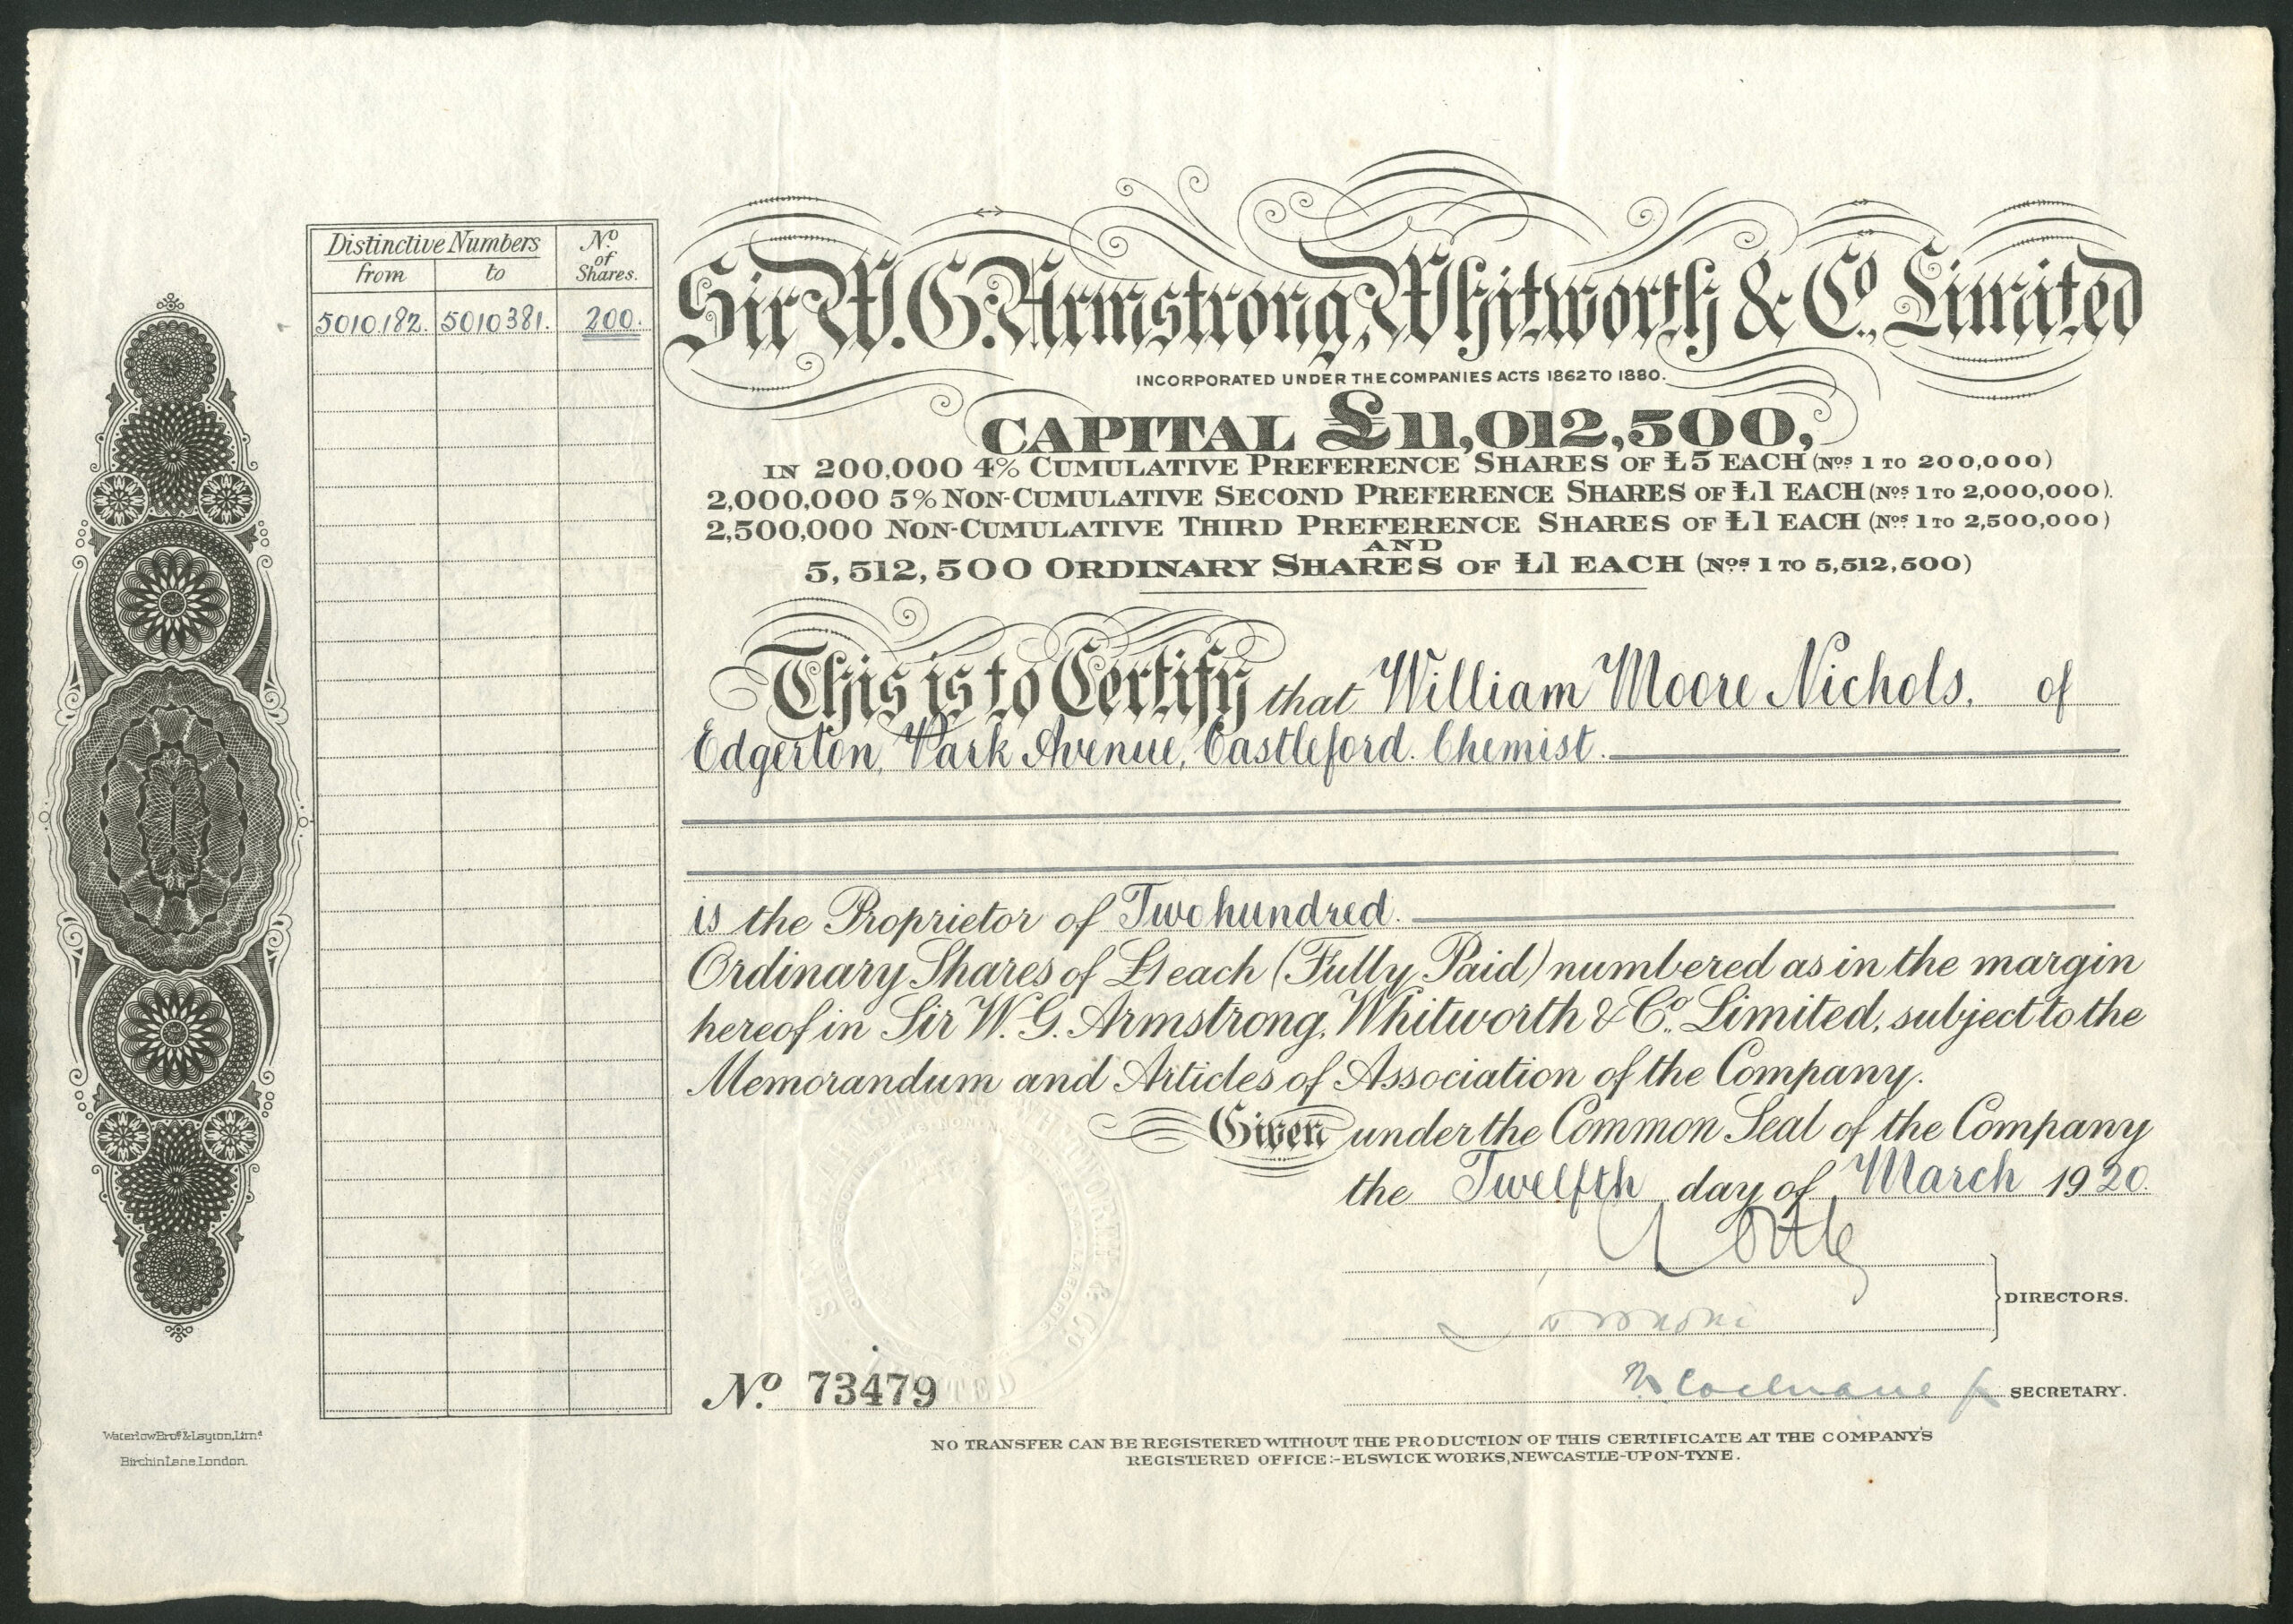 Distinctive Numbers
No. of Shares.
from to
5010182. 5010381. 200.
Sir W. G. Armstrong, Whitworth & Co., Limited
INCORPORATED UNDER THE COMPANIES ACTS 1862 TO 1880.
CAPITAL £11,012,500,
IN 200,000 4% CUMULATIVE PREFERENCE SHARES OF £5 EACH (Nos. 1 TO 200,000)
2,000,000 5% NON-CUMULATIVE SECOND PREFERENCE SHARES OF £1 EACH (Nos. 1 TO 2,000,000).
2,500,000 NON-CUMULATIVE THIRD PREFERENCE SHARES OF £1 EACH (Nos. 1 TO 2,500,000)
AND
5,512,500 ORDINARY SHARES OF £1 EACH (Nos. 1 TO 5,512,500)
This is to Certify that William Moore Nichols, of
Edgerton, Park Avenue, Castleford. Chemist.
is the Proprietor of Two hundred.
Ordinary Shares of £1 each (Fully Paid) numbered as in the margin
hereof in Sir W. G. Armstrong, Whitworth & Co., Limited, subject to the
Memorandum and Articles of Association of the Company.
Given under the Common Seal of the Company
the Twelfth day of March 1920.
DIRECTORS.
Cochrane
SECRETARY.
No. 73479
NO TRANSFER CAN BE REGISTERED WITHOUT THE PRODUCTION OF THIS CERTIFICATE AT THE COMPANY'S
REGISTERED OFFICE:-ELSWICK WORKS, NEWCASTLE-UPON-TYNE.
Waterlow Bros. & Layton, Limd.
Birchin Lane, London.